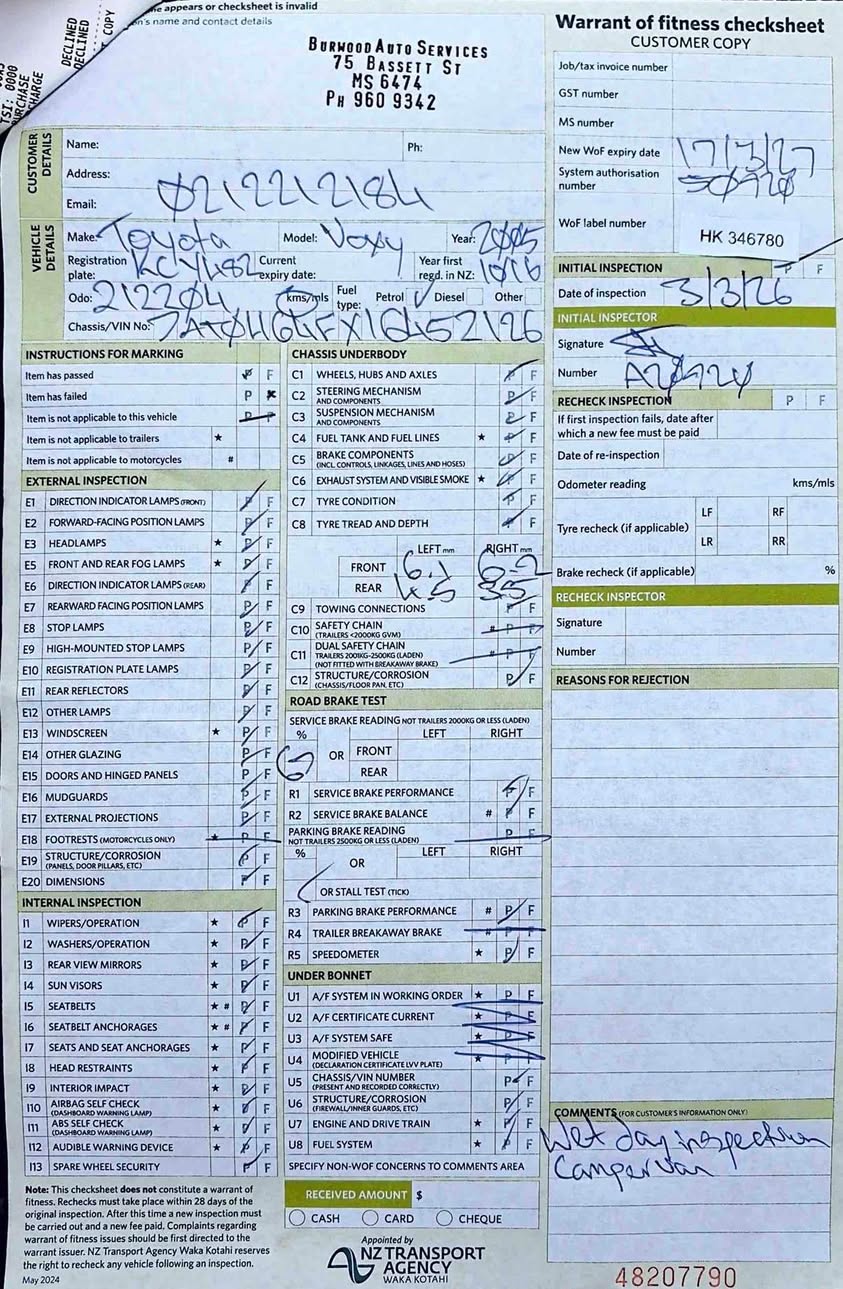 e appears or checksheet is invalid
on's name and contact details
DECLINED
DECLINED
COPY
TSI: 0000
URCHASE
CHARGE
BURWOOD AUTO SERVICES
75 BASSETT ST
MS 6474
PH 960 9342
Warrant of fitness checksheet
CUSTOMER COPY
Job/tax invoice number
GST number
MS number
New WoF expiry date 17/3/27
System authorisation number
WoF label number HK 346780
CUSTOMER DETAILS
Name: Ph:
Address:
Email: 0212212184
VEHICLE DETAILS
Make: Toyota Model: Voxy Year: 2005
Registration plate: KCY482 Current expiry date: Year first regd. in NZ: 1016
Odo: 212204 kms/mls Fuel type: Petrol Diesel Other
Chassis/VIN No: 7AT0H64FX16452126
INITIAL INSPECTION P F
Date of inspection 3/3/26
INITIAL INSPECTOR
Signature
Number
RECHECK INSPECTION P F
If first inspection fails, date after which a new fee must be paid
Date of re-inspection
Odometer reading kms/mls
Tyre recheck (if applicable) LF RF
LR RR
Brake recheck (if applicable) %
RECHECK INSPECTOR
Signature
Number
REASONS FOR REJECTION
INSTRUCTIONS FOR MARKING
Item has passed P F
Item has failed P
Item is not applicable to this vehicle P F
Item is not applicable to trailers ★
Item is not applicable to motorcycles #
EXTERNAL INSPECTION
E1 DIRECTION INDICATOR LAMPS (FRONT) P F
E2 FORWARD-FACING POSITION LAMPS P F
E3 HEADLAMPS ★ P F
E5 FRONT AND REAR FOG LAMPS ★ P F
E6 DIRECTION INDICATOR LAMPS (REAR) P F
E7 REARWARD FACING POSITION LAMPS P F
E8 STOP LAMPS P F
E9 HIGH-MOUNTED STOP LAMPS P F
E10 REGISTRATION PLATE LAMPS P F
E11 REAR REFLECTORS P F
E12 OTHER LAMPS P F
E13 WINDSCREEN ★ P F
E14 OTHER GLAZING P F
E15 DOORS AND HINGED PANELS P F
E16 MUDGUARDS P F
E17 EXTERNAL PROJECTIONS P F
E18 FOOTRESTS (MOTORCYCLES ONLY) ★ P F
E19 STRUCTURE/CORROSION (PANELS, DOOR PILLARS, ETC) P F
E20 DIMENSIONS P F
INTERNAL INSPECTION
I1 WIPERS/OPERATION ★ P F
I2 WASHERS/OPERATION ★ P F
I3 REAR VIEW MIRRORS ★ P F
I4 SUN VISORS ★ P F
I5 SEATBELTS ★ # P F
I6 SEATBELT ANCHORAGES ★ # P F
I7 SEATS AND SEAT ANCHORAGES ★ P F
I8 HEAD RESTRAINTS ★ P F
I9 INTERIOR IMPACT ★ P F
I10 AIRBAG SELF CHECK (DASHBOARD WARNING LAMP) ★ P F
I11 ABS SELF CHECK (DASHBOARD WARNING LAMP) ★ P F
I12 AUDIBLE WARNING DEVICE ★ P F
I13 SPARE WHEEL SECURITY P F
Note: This checksheet does not constitute a warrant of
fitness. Rechecks must take place within 28 days of the
original inspection. After this time a new inspection must
be carried out and a new fee paid. Complaints regarding
warrant of fitness issues should be first directed to the
warrant issuer. NZ Transport Agency Waka Kotahi reserves
the right to recheck any vehicle following an inspection.
May 2024
CHASSIS UNDERBODY
C1 WHEELS, HUBS AND AXLES P F
C2 STEERING MECHANISM AND COMPONENTS P F
C3 SUSPENSION MECHANISM AND COMPONENTS P F
C4 FUEL TANK AND FUEL LINES ★ P F
C5 BRAKE COMPONENTS (INCL. CONTROLS, LINKAGES, LINES AND HOSES) P F
C6 EXHAUST SYSTEM AND VISIBLE SMOKE ★ P F
C7 TYRE CONDITION P F
C8 TYRE TREAD AND DEPTH P F
LEFT mm RIGHT mm
FRONT 6.1 6.2
REAR 4.5 3.5
C9 TOWING CONNECTIONS P F
C10 SAFETY CHAIN (TRAILERS <2000KG GVM) # P F
C11 DUAL SAFETY CHAIN TRAILERS 2001KG-2500KG (LADEN) (NOT FITTED WITH BREAKAWAY BRAKE) # P F
C12 STRUCTURE/CORROSION (CHASSIS/FLOOR PAN, ETC) P F
ROAD BRAKE TEST
SERVICE BRAKE READING NOT TRAILERS 2000KG OR LESS (LADEN)
% LEFT RIGHT
OR FRONT
REAR
R1 SERVICE BRAKE PERFORMANCE P F
R2 SERVICE BRAKE BALANCE # P F
PARKING BRAKE READING NOT TRAILERS 2500KG OR LESS (LADEN) P F
% LEFT RIGHT
OR
OR STALL TEST (TICK)
R3 PARKING BRAKE PERFORMANCE # P F
R4 TRAILER BREAKAWAY BRAKE # P F
R5 SPEEDOMETER ★ P F
UNDER BONNET
U1 A/F SYSTEM IN WORKING ORDER ★ P F
U2 A/F CERTIFICATE CURRENT ★ P F
U3 A/F SYSTEM SAFE ★ P F
U4 MODIFIED VEHICLE (DECLARATION CERTIFICATE LVV PLATE) ★ P F
U5 CHASSIS/VIN NUMBER (PRESENT AND RECORDED CORRECTLY) P F
U6 STRUCTURE/CORROSION (FIREWALL/INNER GUARDS, ETC) P F
U7 ENGINE AND DRIVE TRAIN ★ P F
U8 FUEL SYSTEM ★ P F
SPECIFY NON-WOF CONCERNS TO COMMENTS AREA
RECEIVED AMOUNT $
CASH CARD CHEQUE
Appointed by
NZ TRANSPORT
AGENCY
WAKA KOTAHI
COMMENTS (FOR CUSTOMER'S INFORMATION ONLY)
Wet day inspection
Camper van
48207790